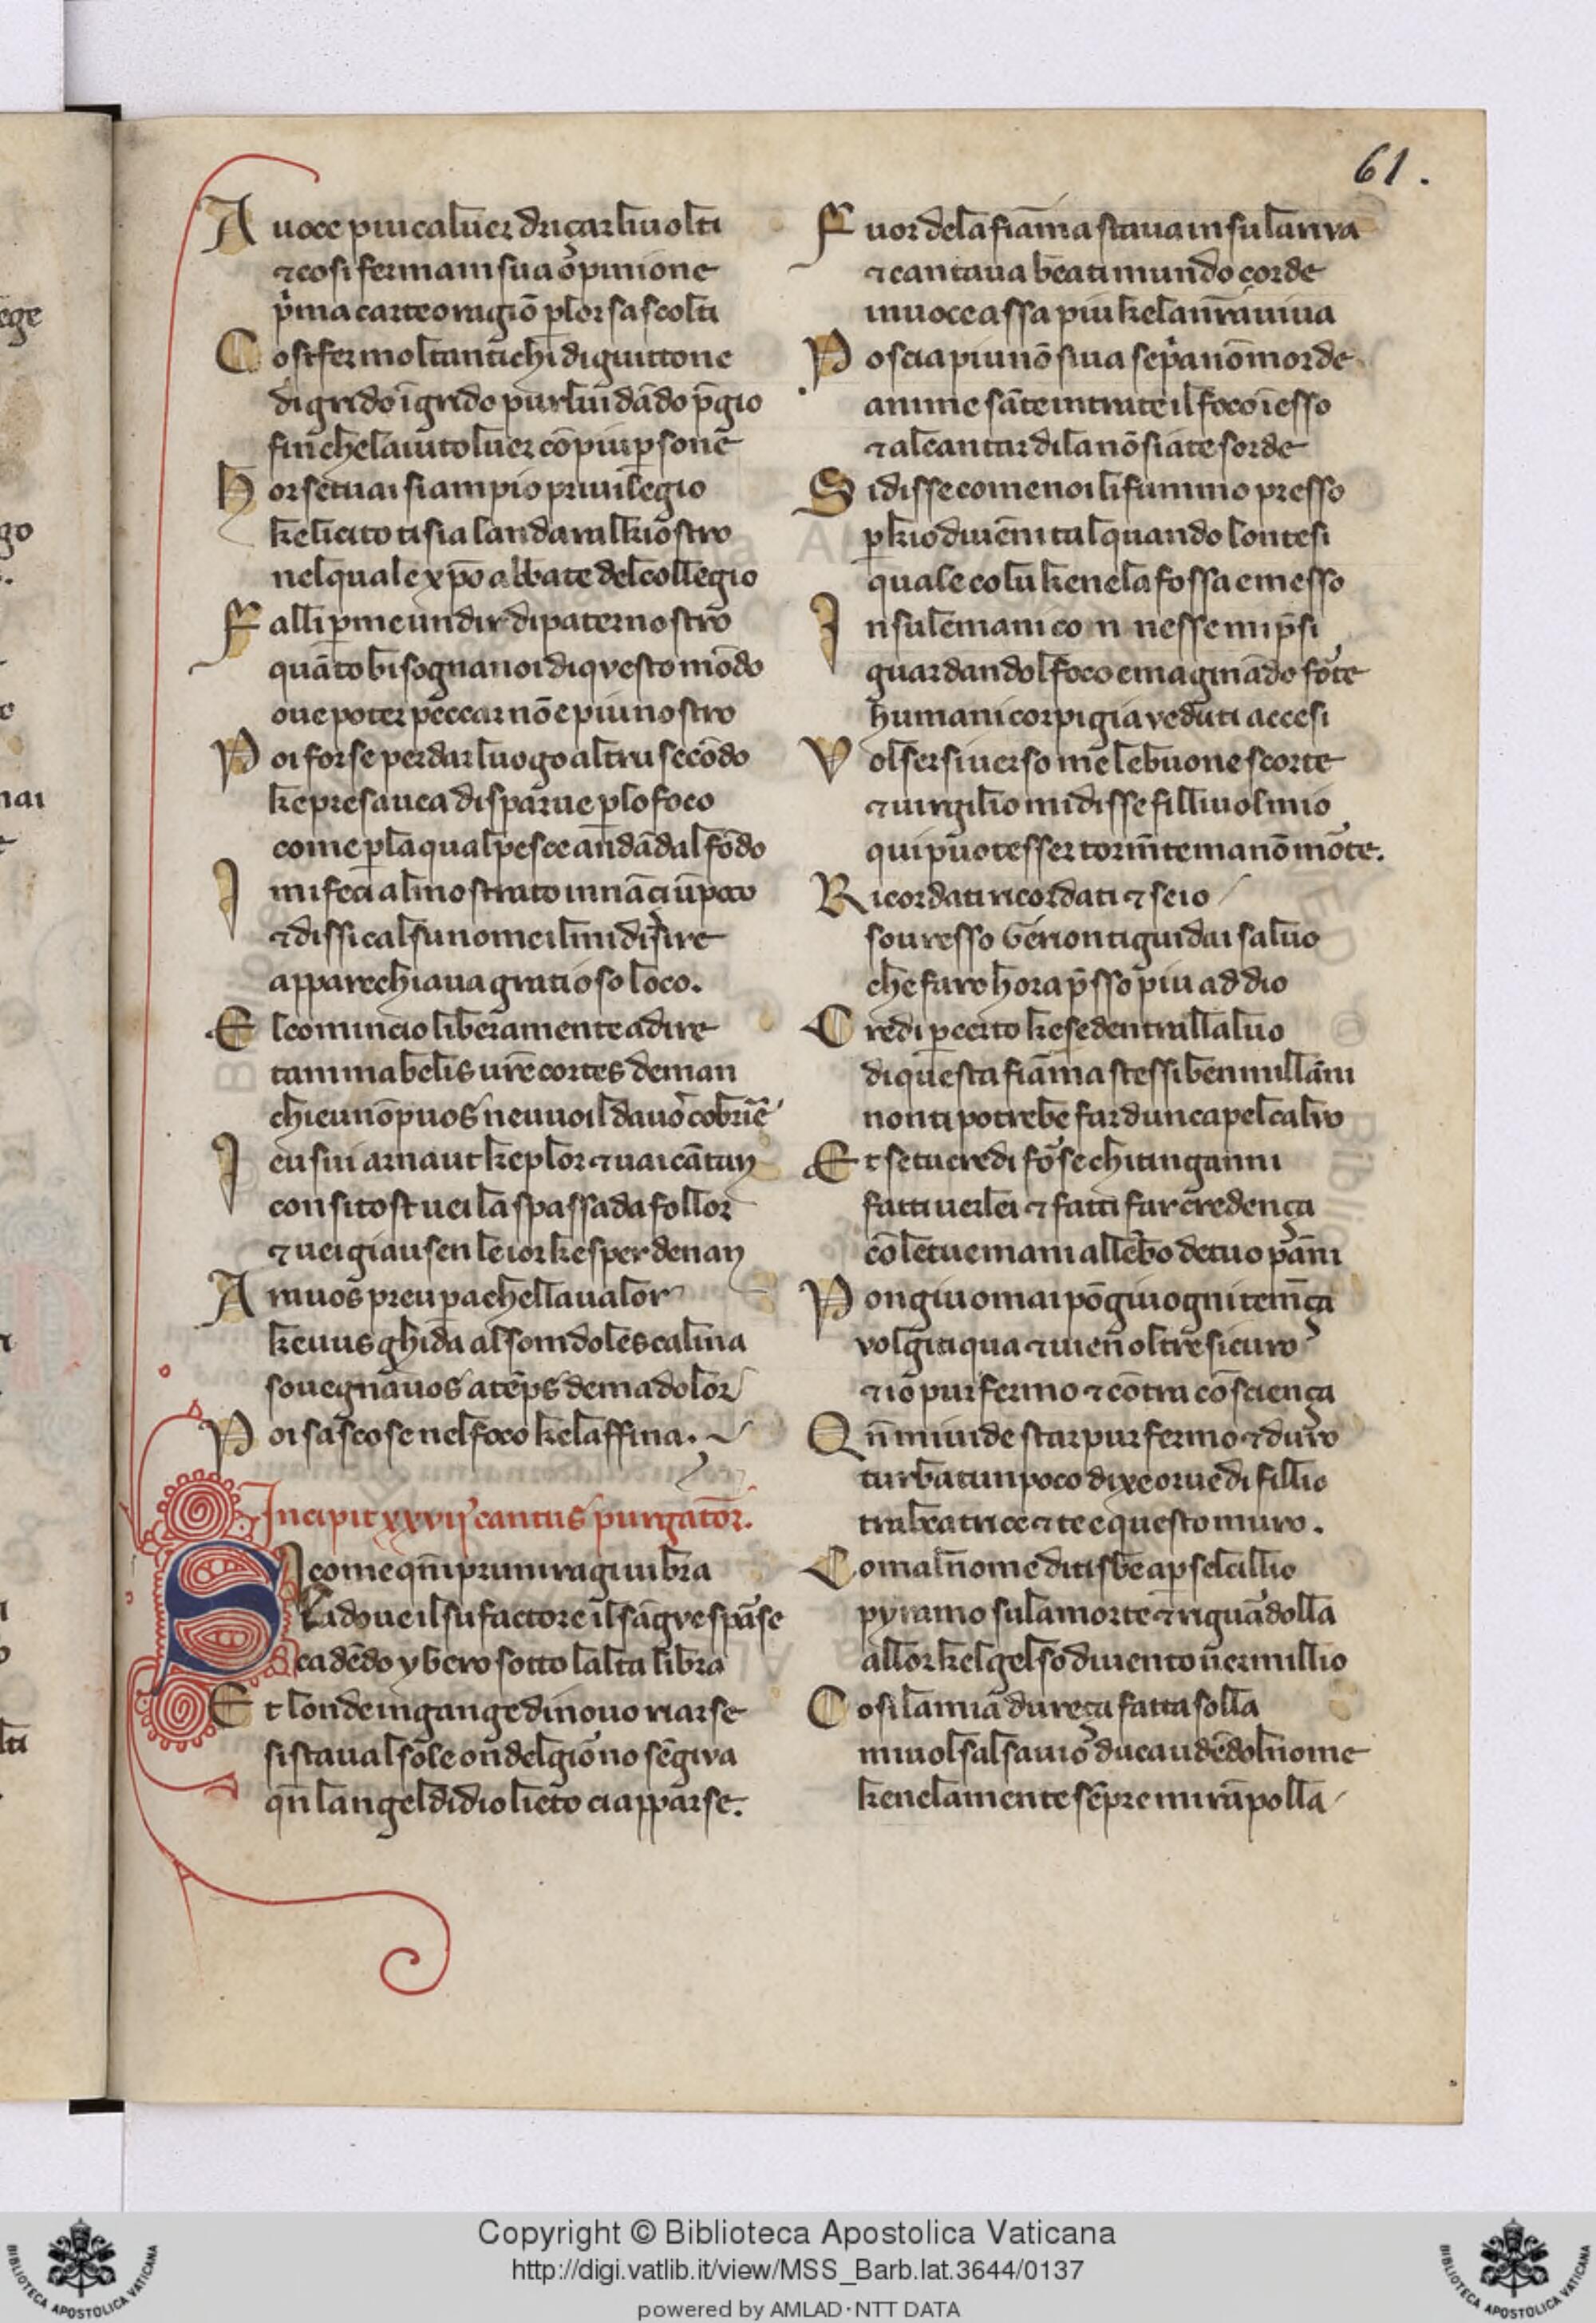 61.
A voce piu cal uer driçar li uolti
⁊ cosi ferman sua opinione
p̍ma carte o ragiō p lor s ascolti
Cosi fer molti antichi di guittone
di grido ī grido pur lui dādo p̄gio
fin chel a uinto l uer cō piu p̱sone
Hor se tu ai si ampio priuilegio
ke licito ti sia l andar al kiostro
nel quale xp̄o abbate del collegio
Falli p̱ me un dir di paternostro
quāto bisogna noi di qvesto mōdo
oue poter peccar nō e piu nostro
Poi forse per dar luogo altrui secōdo
ke preso auea disparue p lo foco
come p l aqua l pesce andādo al fōdo
I mi feci al mostrato innāci ū poco
⁊ dissi cal suo nome il mi disire
apparechiaua gratioso loco.
El comincio liberamente a dire
tam mabelis ur̄e cortes deman
chieu nō puos ne uuoil da uo cobrir̄e
Ieu sui arnaut ke plor ⁊ uai cātan
consitost uei la spassada follor
⁊ uei giausen le ior ke sper denan
Ara uos preu pachella valor
ke uus ghida al som doles calina
souegnauos a tēps de ma dolor
Poi s ascose nel foco ke l affina.
Incipit xxvij cantus purgator̄.
Sicome qn̄ i primi raggi uibra
La doue il su factore il sāgve sparse
cadēdo ybero sotto l alta libra
Et l onde in gange di nouo riarse
si staua l sole onde l giorno sē giva
qn̄ l angel di dio lieto ci apparse.
Fuor de la fiāma staua in su la riva
⁊ cantaua beati mundo corde
in uoce assa piu ke la nr̄a uiua
Poscia piu nō si ua se p̍a nō morde
anime sāte intrate il foco ī esso
⁊ al cantar di la nō siate sorde
Si disse come noi li fummo presso
p̱ kio diuēni tal quando lo ntesi
qual e colui ke ne la fossa e messo
In su le mani co n nesse mi p̄si
guardando l foco e maginādo forte
humani corpi gia veduti accesi
Volser si uerso me le buone scorte
⁊ uirgilio mi disse filliuol mio
qui puote esser tormēte ma nō morte.
Ricordati ricordati ⁊ se io
souresso Gerion ti guidai saluo
che faro hora p̄sso piu ad dio
Credi p̱ certo ke se dentr all aluo
di questa fiāma stessi ben mill anni
non ti potrebe far dun capel calvo
Et se tu credi forse chi t inganni
fatti uer lei ⁊ fatti far credença
cō le tue mani al lēbo de tuo panni
Pon giu omai pō giu ogni temēça
volgiti qua ⁊ uieni oltre sicuro
⁊ io pur fermo ⁊ contra consciença
Qn̄ mi uide star pur fermo ⁊ duro
turbat un poco dixe or uedi fillio
tra beatrice ⁊ te e questo muro.
Com al nome di tisbe ap̱se l cillio
pyramo su la morte ⁊ riguardolla
allor kel gelso diuento uermillio
Cosi la mia dureça fatta solla
mi uolsi al sauio duca udēdo l nome
ke ne la mente sēpre mi rampolla
Copyright © Biblioteca Apostolica Vaticana
http://digi.vatlib.it/view/MSS_Barb.lat.3644/0137
powered by AMLAD·NTT DATA
BIBLIOTECA APOSTOLICA VATICANA
BIBLIOTECA APOSTOLICA VATICANA